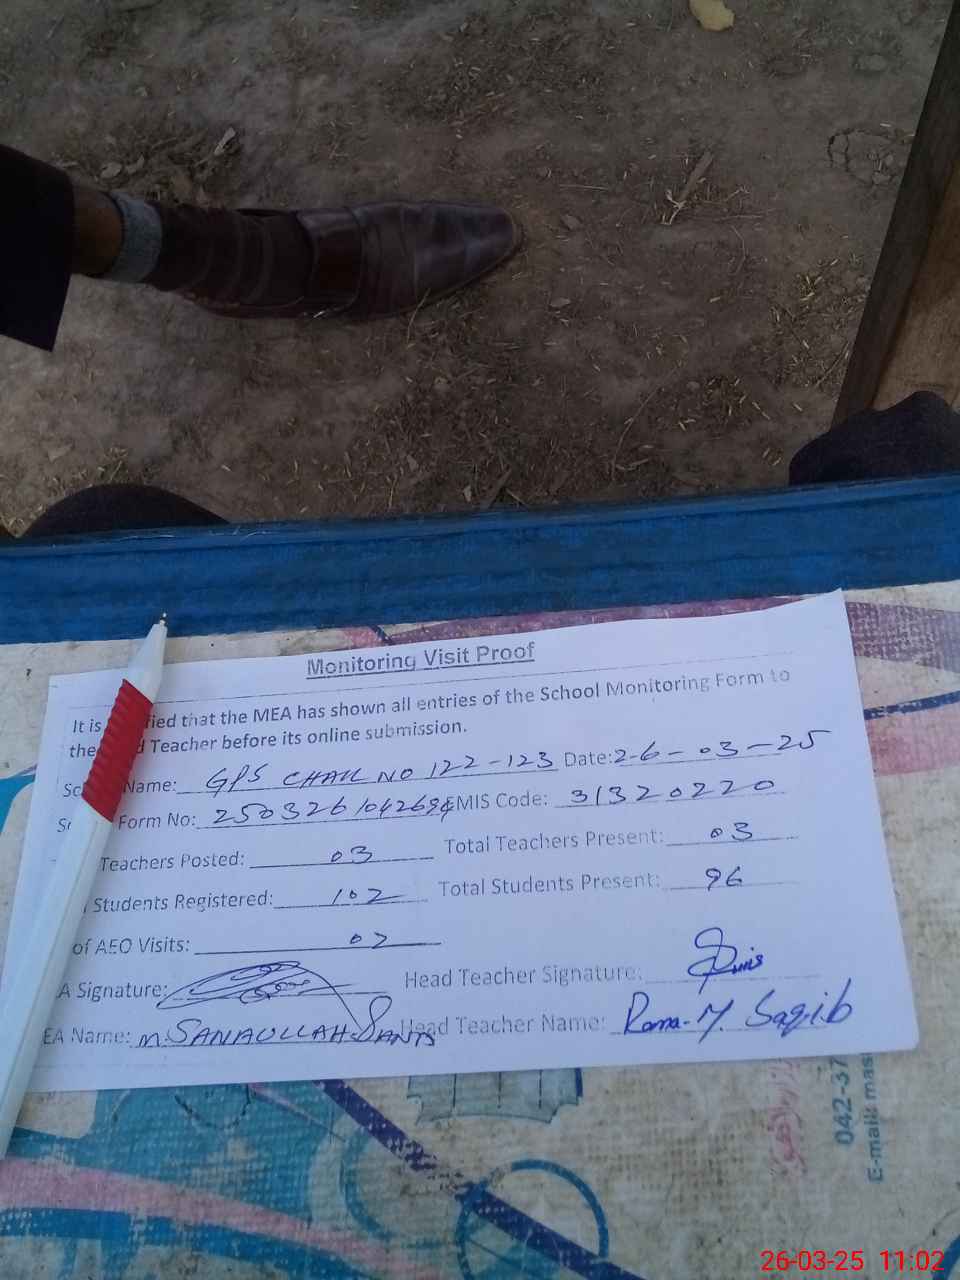 Monitoring Visit Proof
It is fied that the MEA has shown all entries of the School Monitoring Form to
the d Teacher before its online submission.
Sc Name: GPS CHAK NO 122-123 Date: 26-03-25
Form No: EMIS Code: 31320220
Teachers Posted: 03 Total Teachers Present: 03
Students Registered: 102 Total Students Present: 96
of AEO Visits: 02
A Signature: Head Teacher Signature:
EA Name: M. SANAULLAH Head Teacher Name: Rana M. Saqib
042-37
E-mail: mas
26-03-25 11:02